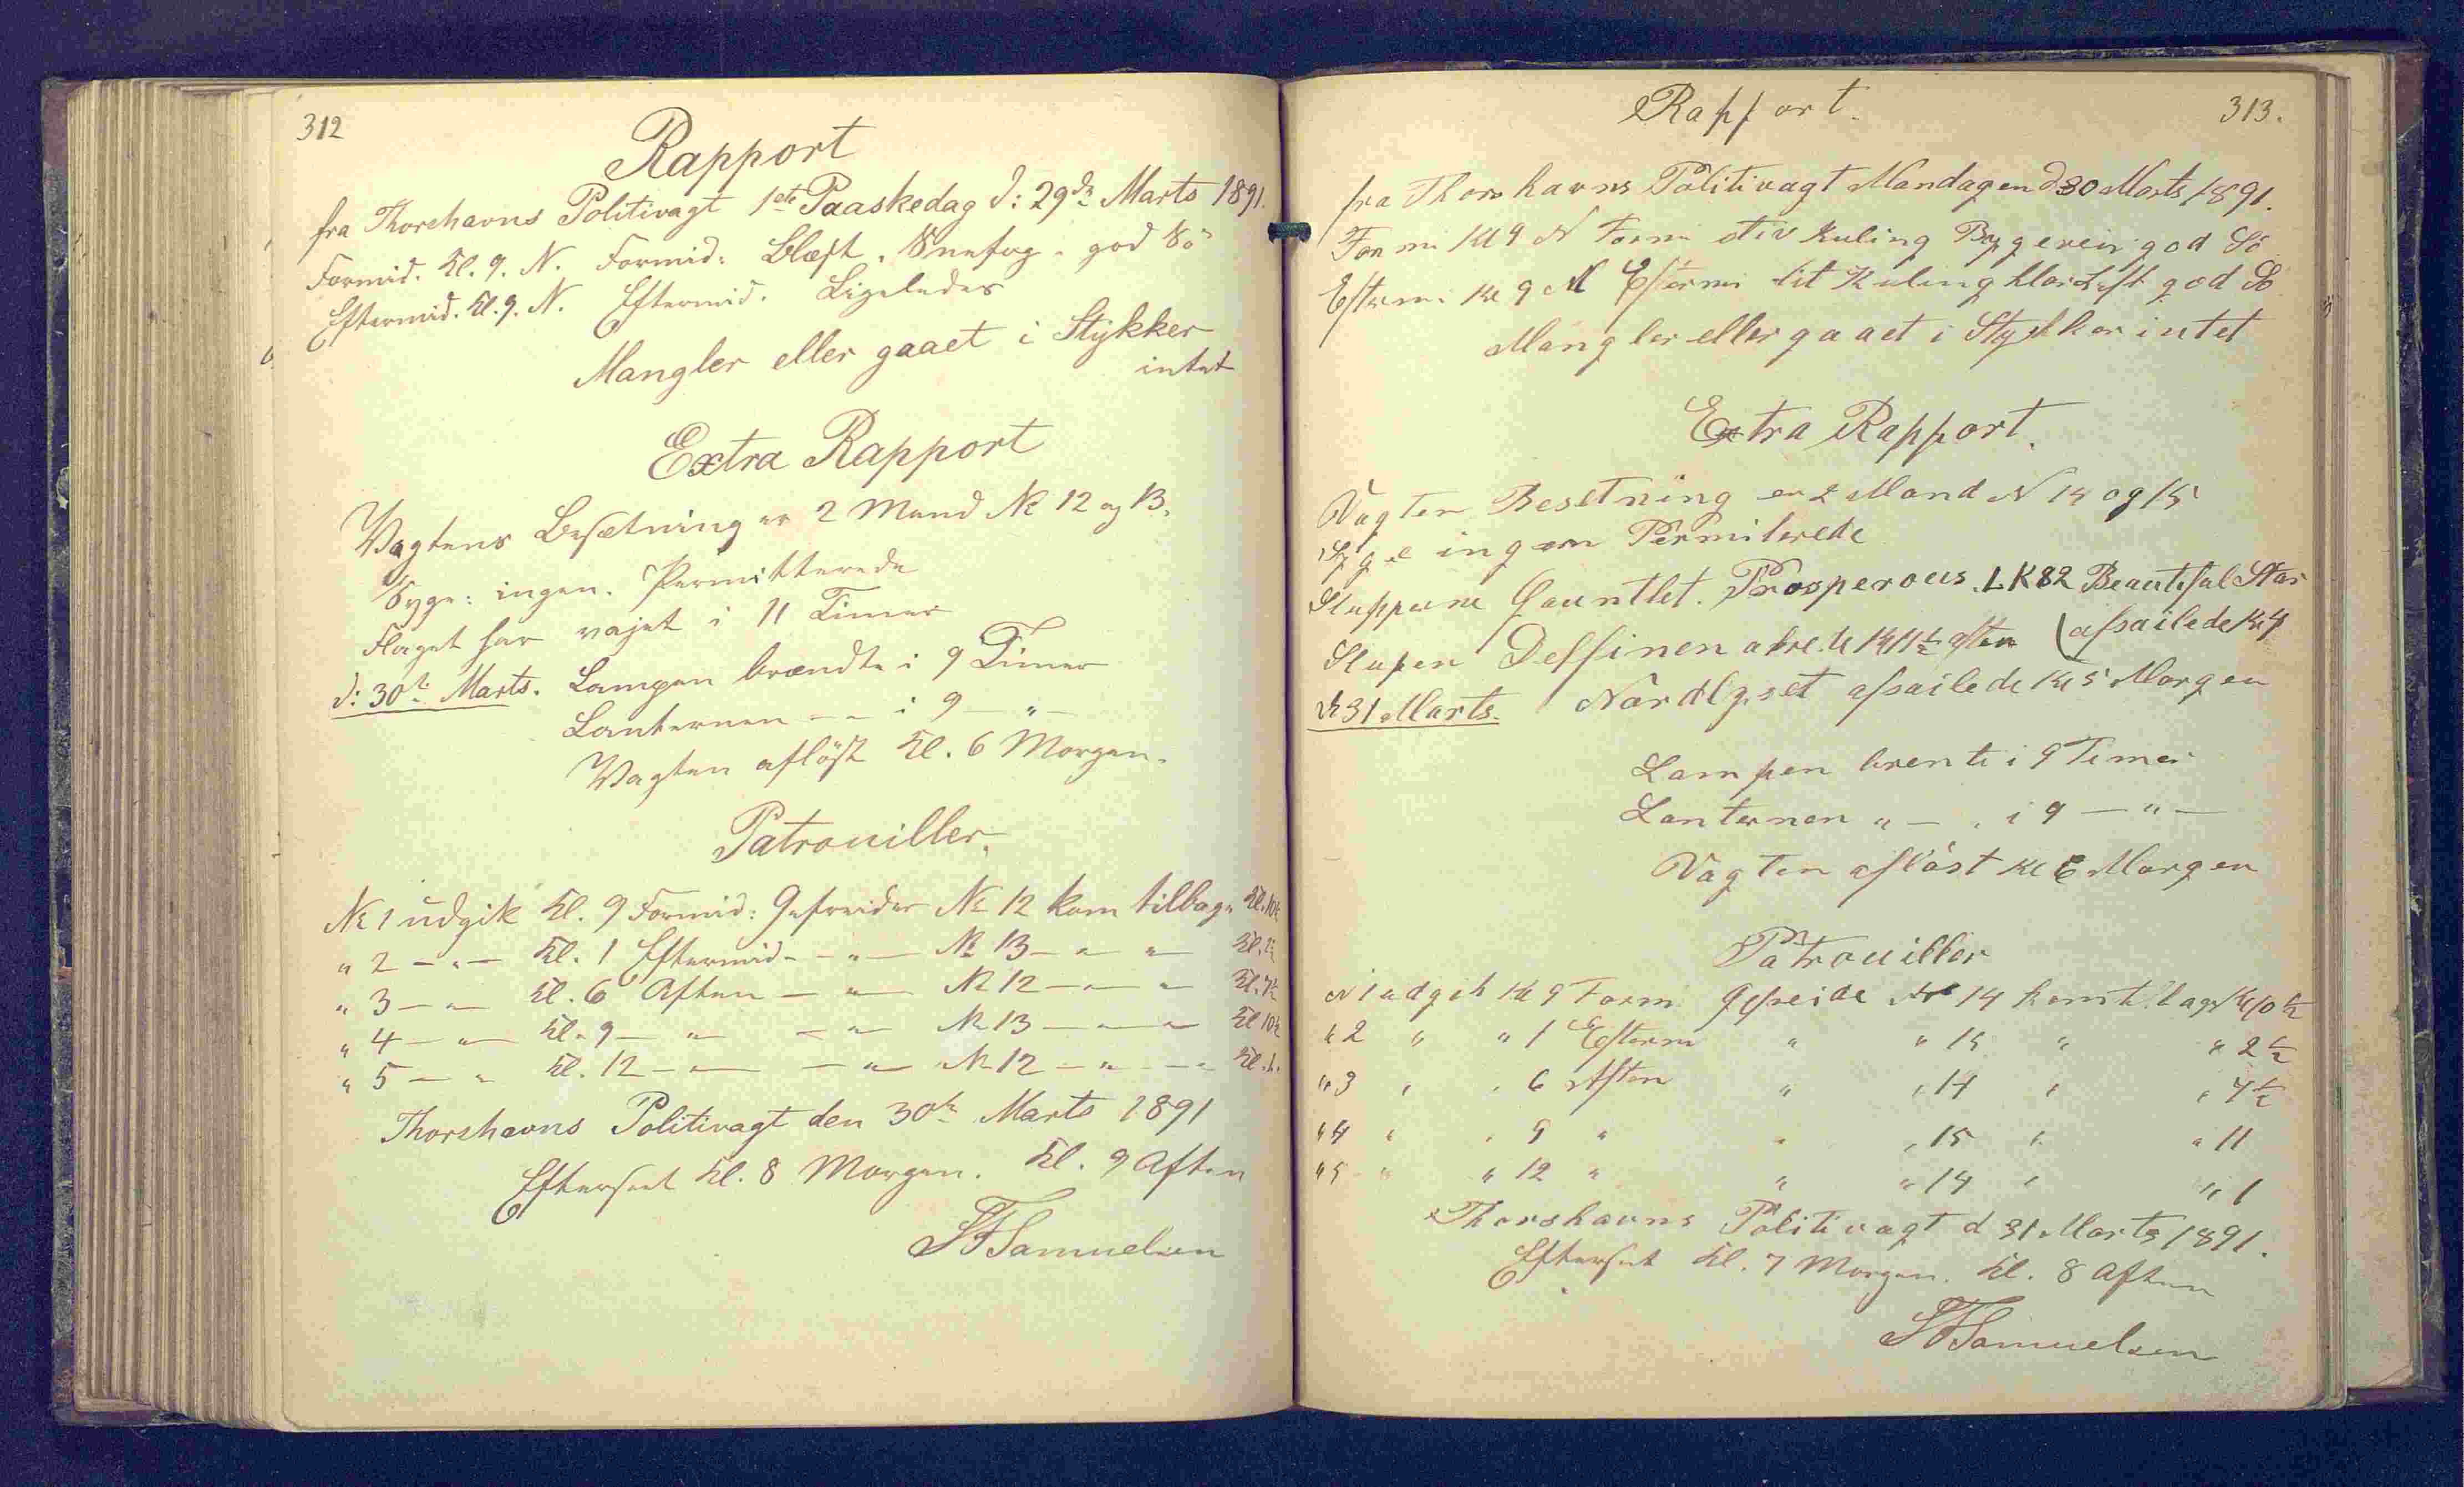 312
Rapport
fra Thorshavns Politivagt 1ste Paaskedag d: 29de Marts 1891.
Formid. Kl. 9. N. Formid: Blæst. Snefog. god Sö
Eftermid. Kl. 9. N. Eftermid. Ligeledes
Mangler eller gaaet i Stykker
intet
Extra Rapport
Vagtens Besætning er 2 Mand No 12 og 13.
Syge: ingen. Permitterede
Flaget har vajet i 11 Timer
d: 30te Marts. Lampen brændte i 9 Timer
Lanternen - - i 9 - " -
Vagten aflöst Kl. 6 Morgen.
Patrouiller.
No 1 udgik Kl. 9 Formid: Gefreider No 12 kom tilbage Kl. 10½
" 2 - " - Kl. 1 Eftermid - - " - No 13 - " - " - Kl. 2½
" 3 - " - Kl. 6 Aften - " - No 12 - " - " Kl. 7½
" 4 - " - Kl. 9 - " - - " - No 13 - " - " - Kl 10½
" 5 - " Kl. 12 - " - - " - No 12 - " - - " Kl. 1.
Thorshavns Politivagt den 30te Marts 1891
Efterseet Kl. 8 Morgen. Kl. 9 Aften
Samuelsen
Rapport.
313.
fra Thorshavns Politivagt Mandagen d 30 Marts 1891.
Formi Kl 9 N Formi stiv Kuling Bygeveir god Sö
Eftermi Kl 9 N Eftermi lit Kuling klar Luft god Sö
Mangler eller gaaet i Stykker intet
Extra Rapport.
Vagten Besetning er 2 Mand N 14 og 15
Syge ingen Permiterede
Slupperne Gauntlet. Prosperous. LK 82 Beautiful Star
Slupen Delfinen Kl 11½ aften (afsailede Kl 4
d 31 Marts. Nordlyset afsailede Kl 5 Morgen
Lampen brente i 9 Timer
Lanternen " - " i 9 - " -
Vagten aflöst Kl 6 Morgen
Patrouiller
N 1 udgik Kl 9 Form Gefreide No 14 kom tilbage Kl 10½
" 2 " " 1 Efterm " " 15 " " 2½
" 3 " " 6 Aften " " 14 " " 7½
" 4 " " 9 " " " 15 " " 11
" 5 " " 12 " " " 14 " " 1
Thorshavns Politivagt d 31 Marts 1891.
Efterseet Kl. 7 Morgen. Kl. 8 Aften
Samuelsen